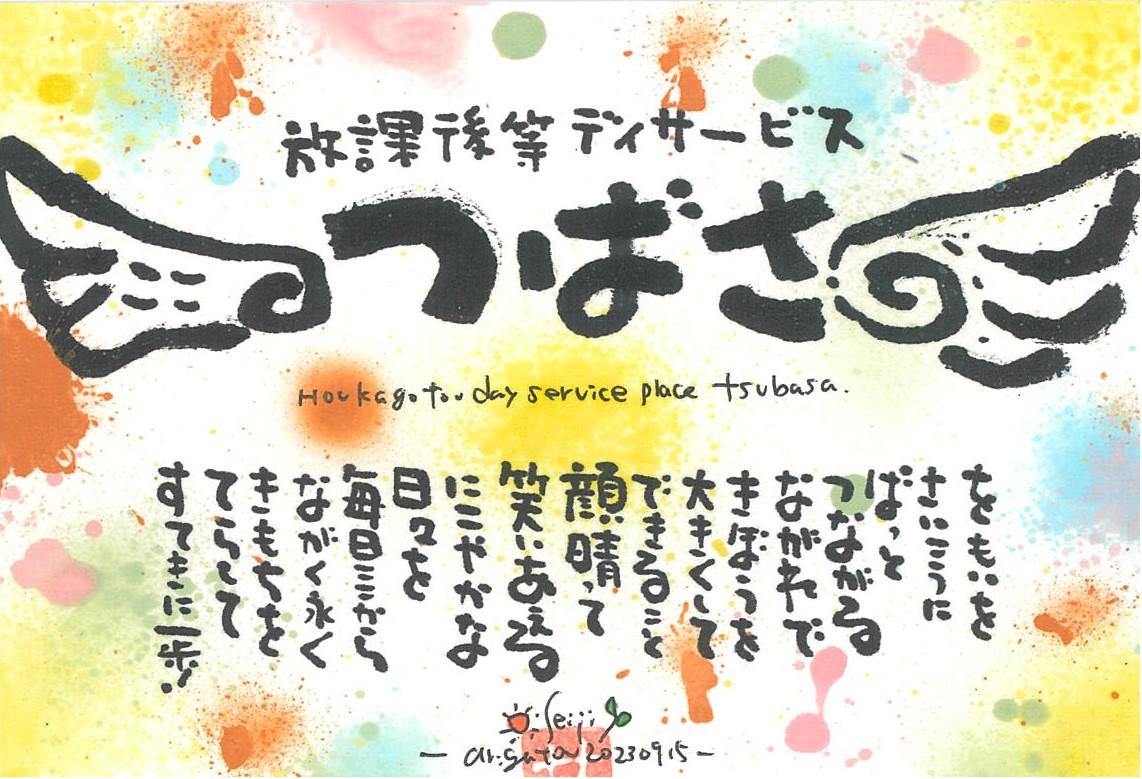 放課後等デイサービス
つばさ
Houkagotou day service place tsubasa.
をもいを
さいこうに
ぱっと
つながる
ながれで
きぼうを
大きくして
できること
顔晴って
笑いあえる
にこやかな
日々を
毎日から
ながく永く
きもちを
てらして
すてきに一歩!
Seiji
- arigatou 20230915 -